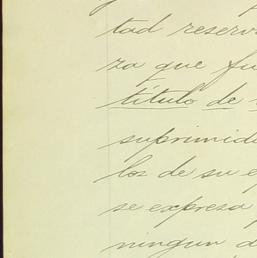 tad reserv
za que fu
título de
suprimid
los de su e
se expresa
ningun d